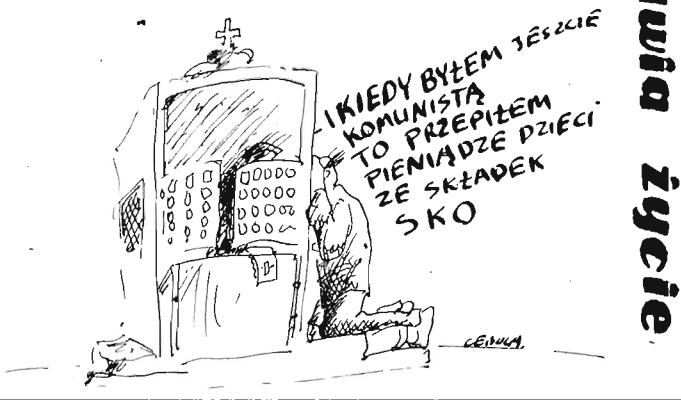 I KIEDY BYŁEM JESZCZE
KOMUNISTĄ
TO PRZEPIŁEM
PIENIĄDZE DZIECI
ZE SKŁADEK
SKO
życie